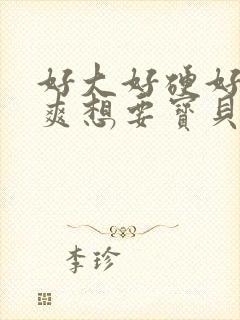 好大好硬好
爽想要寶貝
李珍